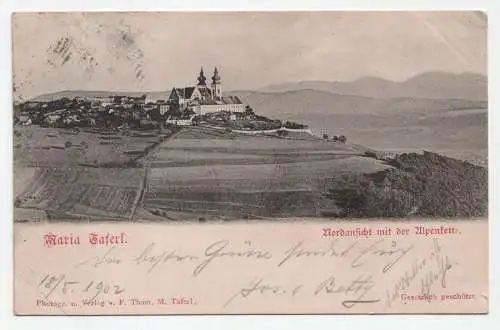 Maria Taferl.
Nordansicht mit der Alpenkette.
Die besten Grüsse sendet Euch
18/5 1902
Jos. u. Betty
Photogr. u. Verlag v. F. Thom, M. Taferl.
Gesetzlich geschützt.